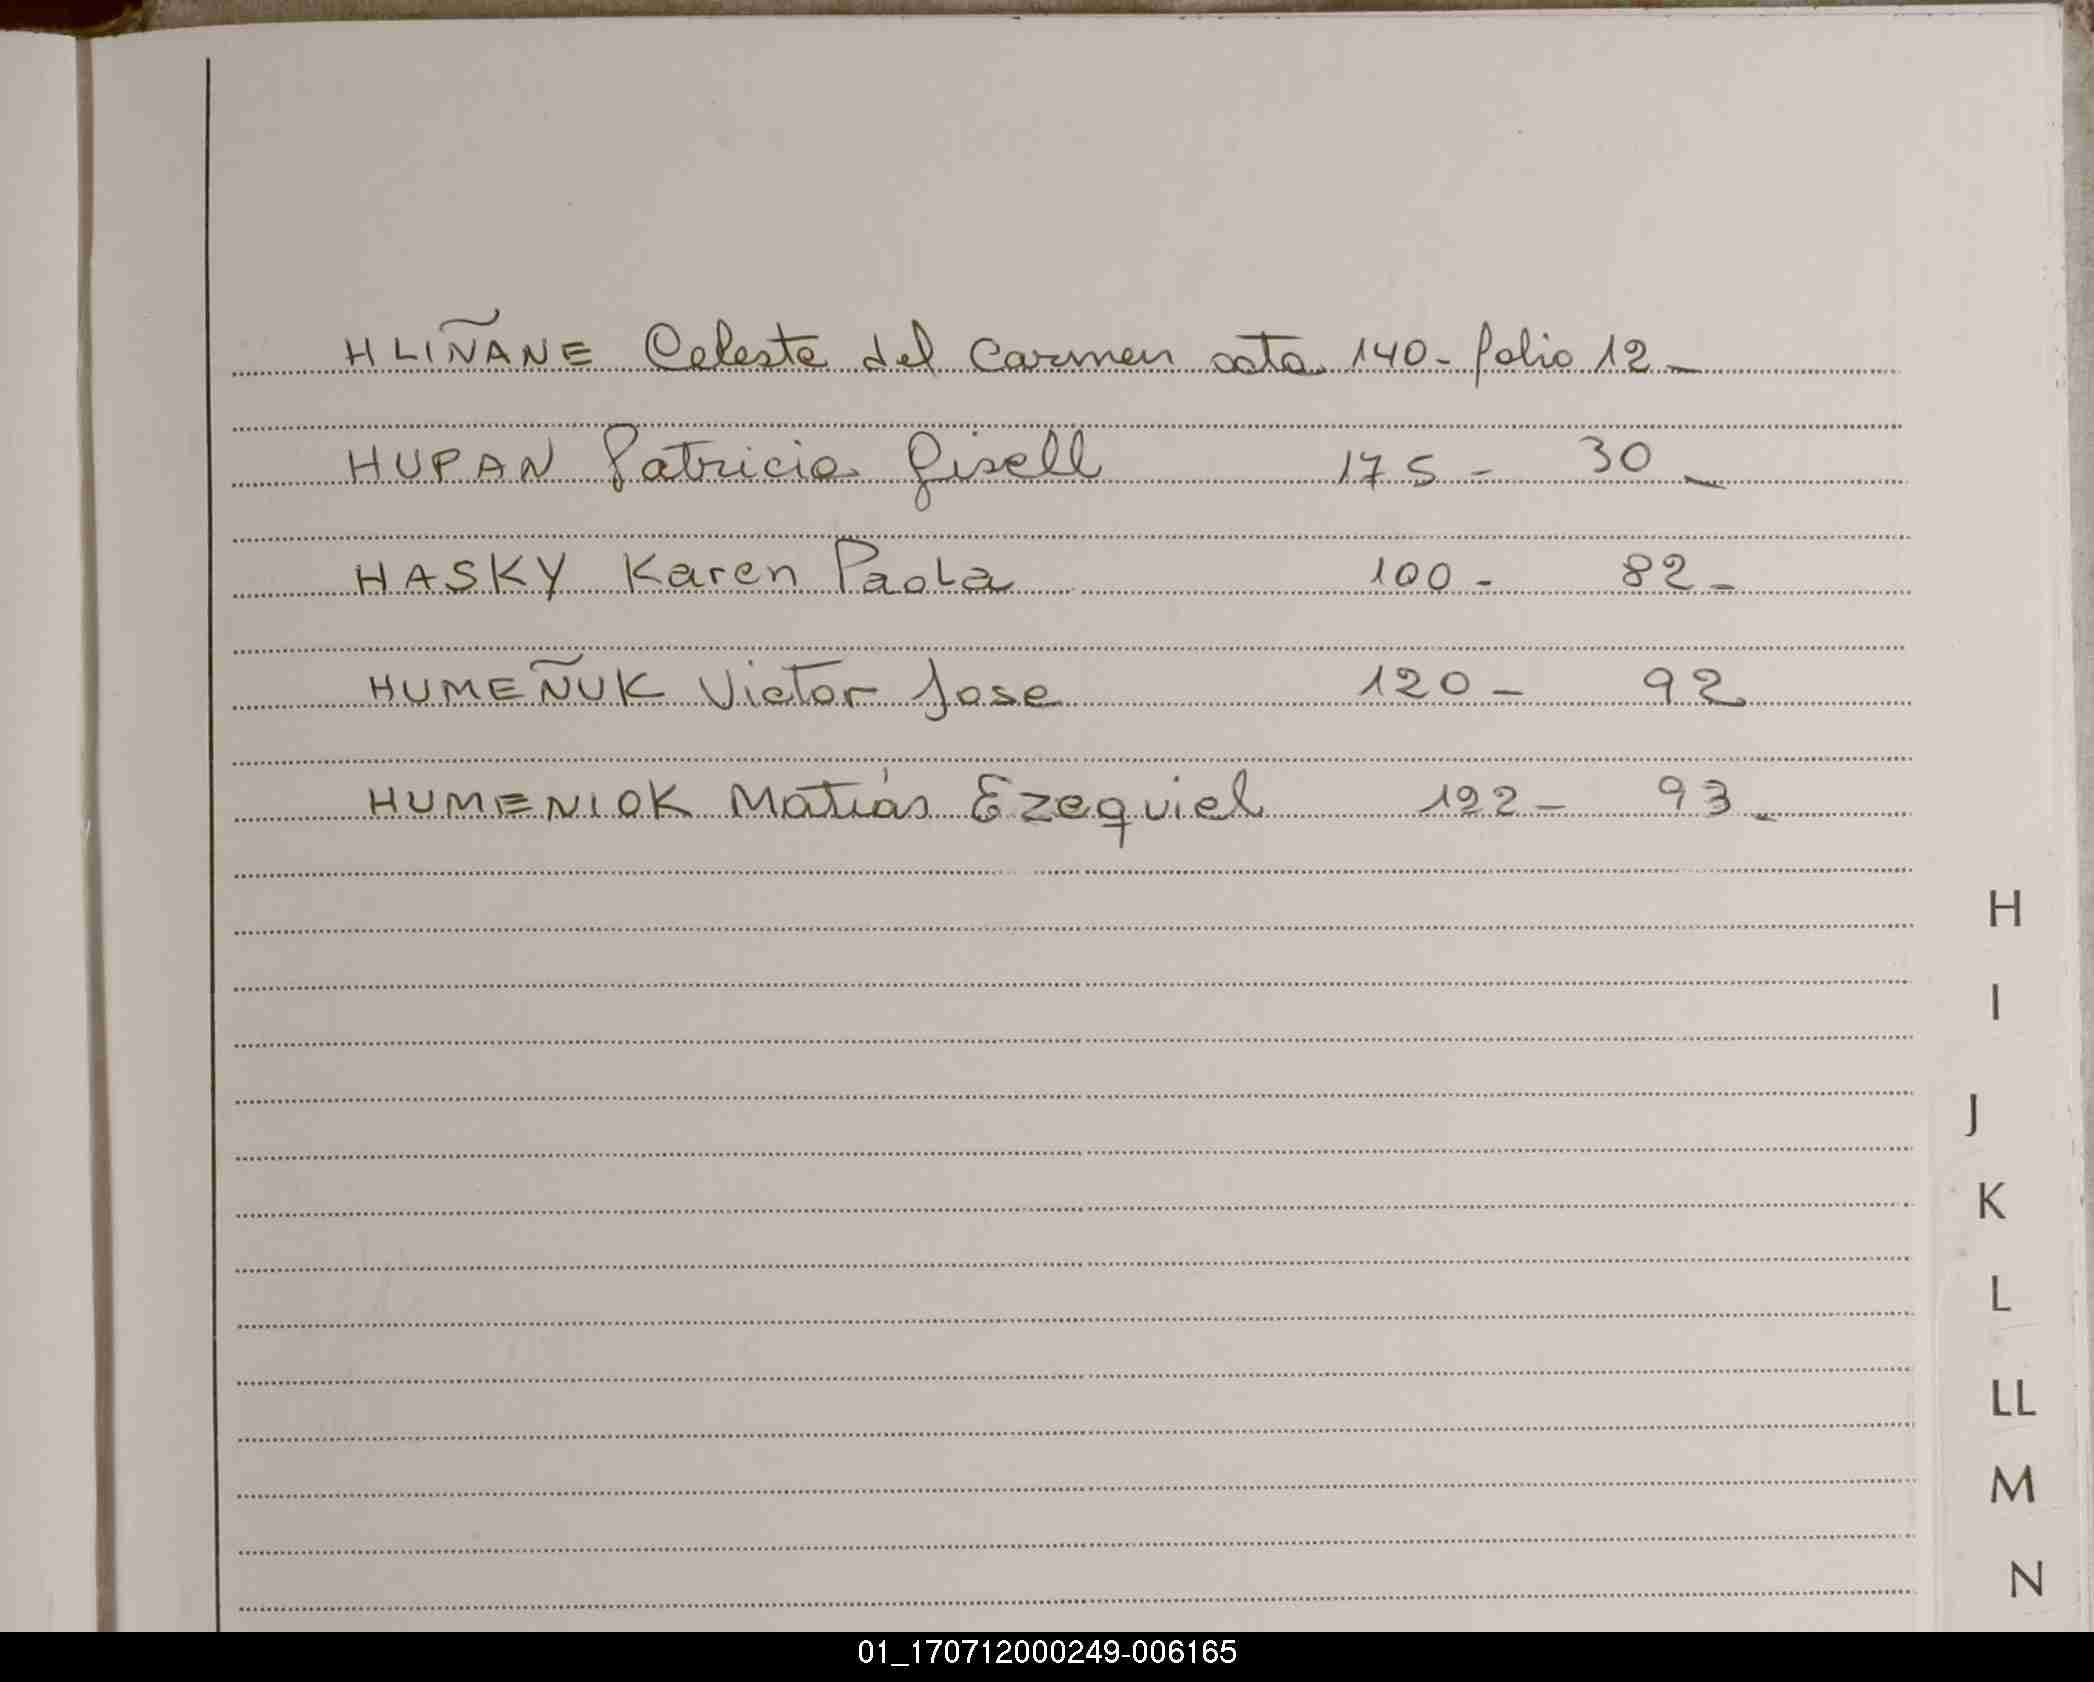 HLIÑANE Celeste del Carmen acta 140- folio 12-
HUPAN Patricia Gisell 175- 30-
HASKY Karen Paola 100- 82-
HUMEÑUK Victor Jose 120- 92
HUMENIOK Matiás Ezequiel 122- 93-
H
I
J
K
L
LL
M
N
01_170712000249-006165